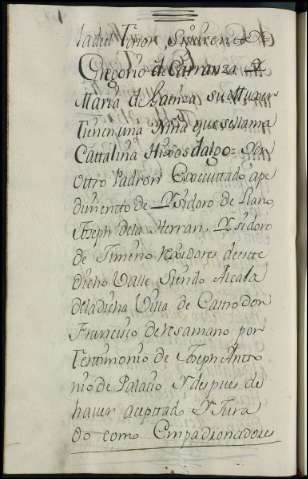 Gregorio de Carranza
Maria de Barrica su Muger
tienen una Niña que se llama
Cattalina Hijosdalgo = 
Ottro Padron Executado ape
dimentto de Dn Isidoro de Llano
Joseph de la Herran, Dn Isidoro
de Ximeno Rexidores de este
dicho Valle siendo Alcalde
de la dicha Villa de Castro don
Francisco de por
testimonio de Joseph Anto
nio de Palacio Y despues de
haver aceptado Y Jura
do como Empadronadores